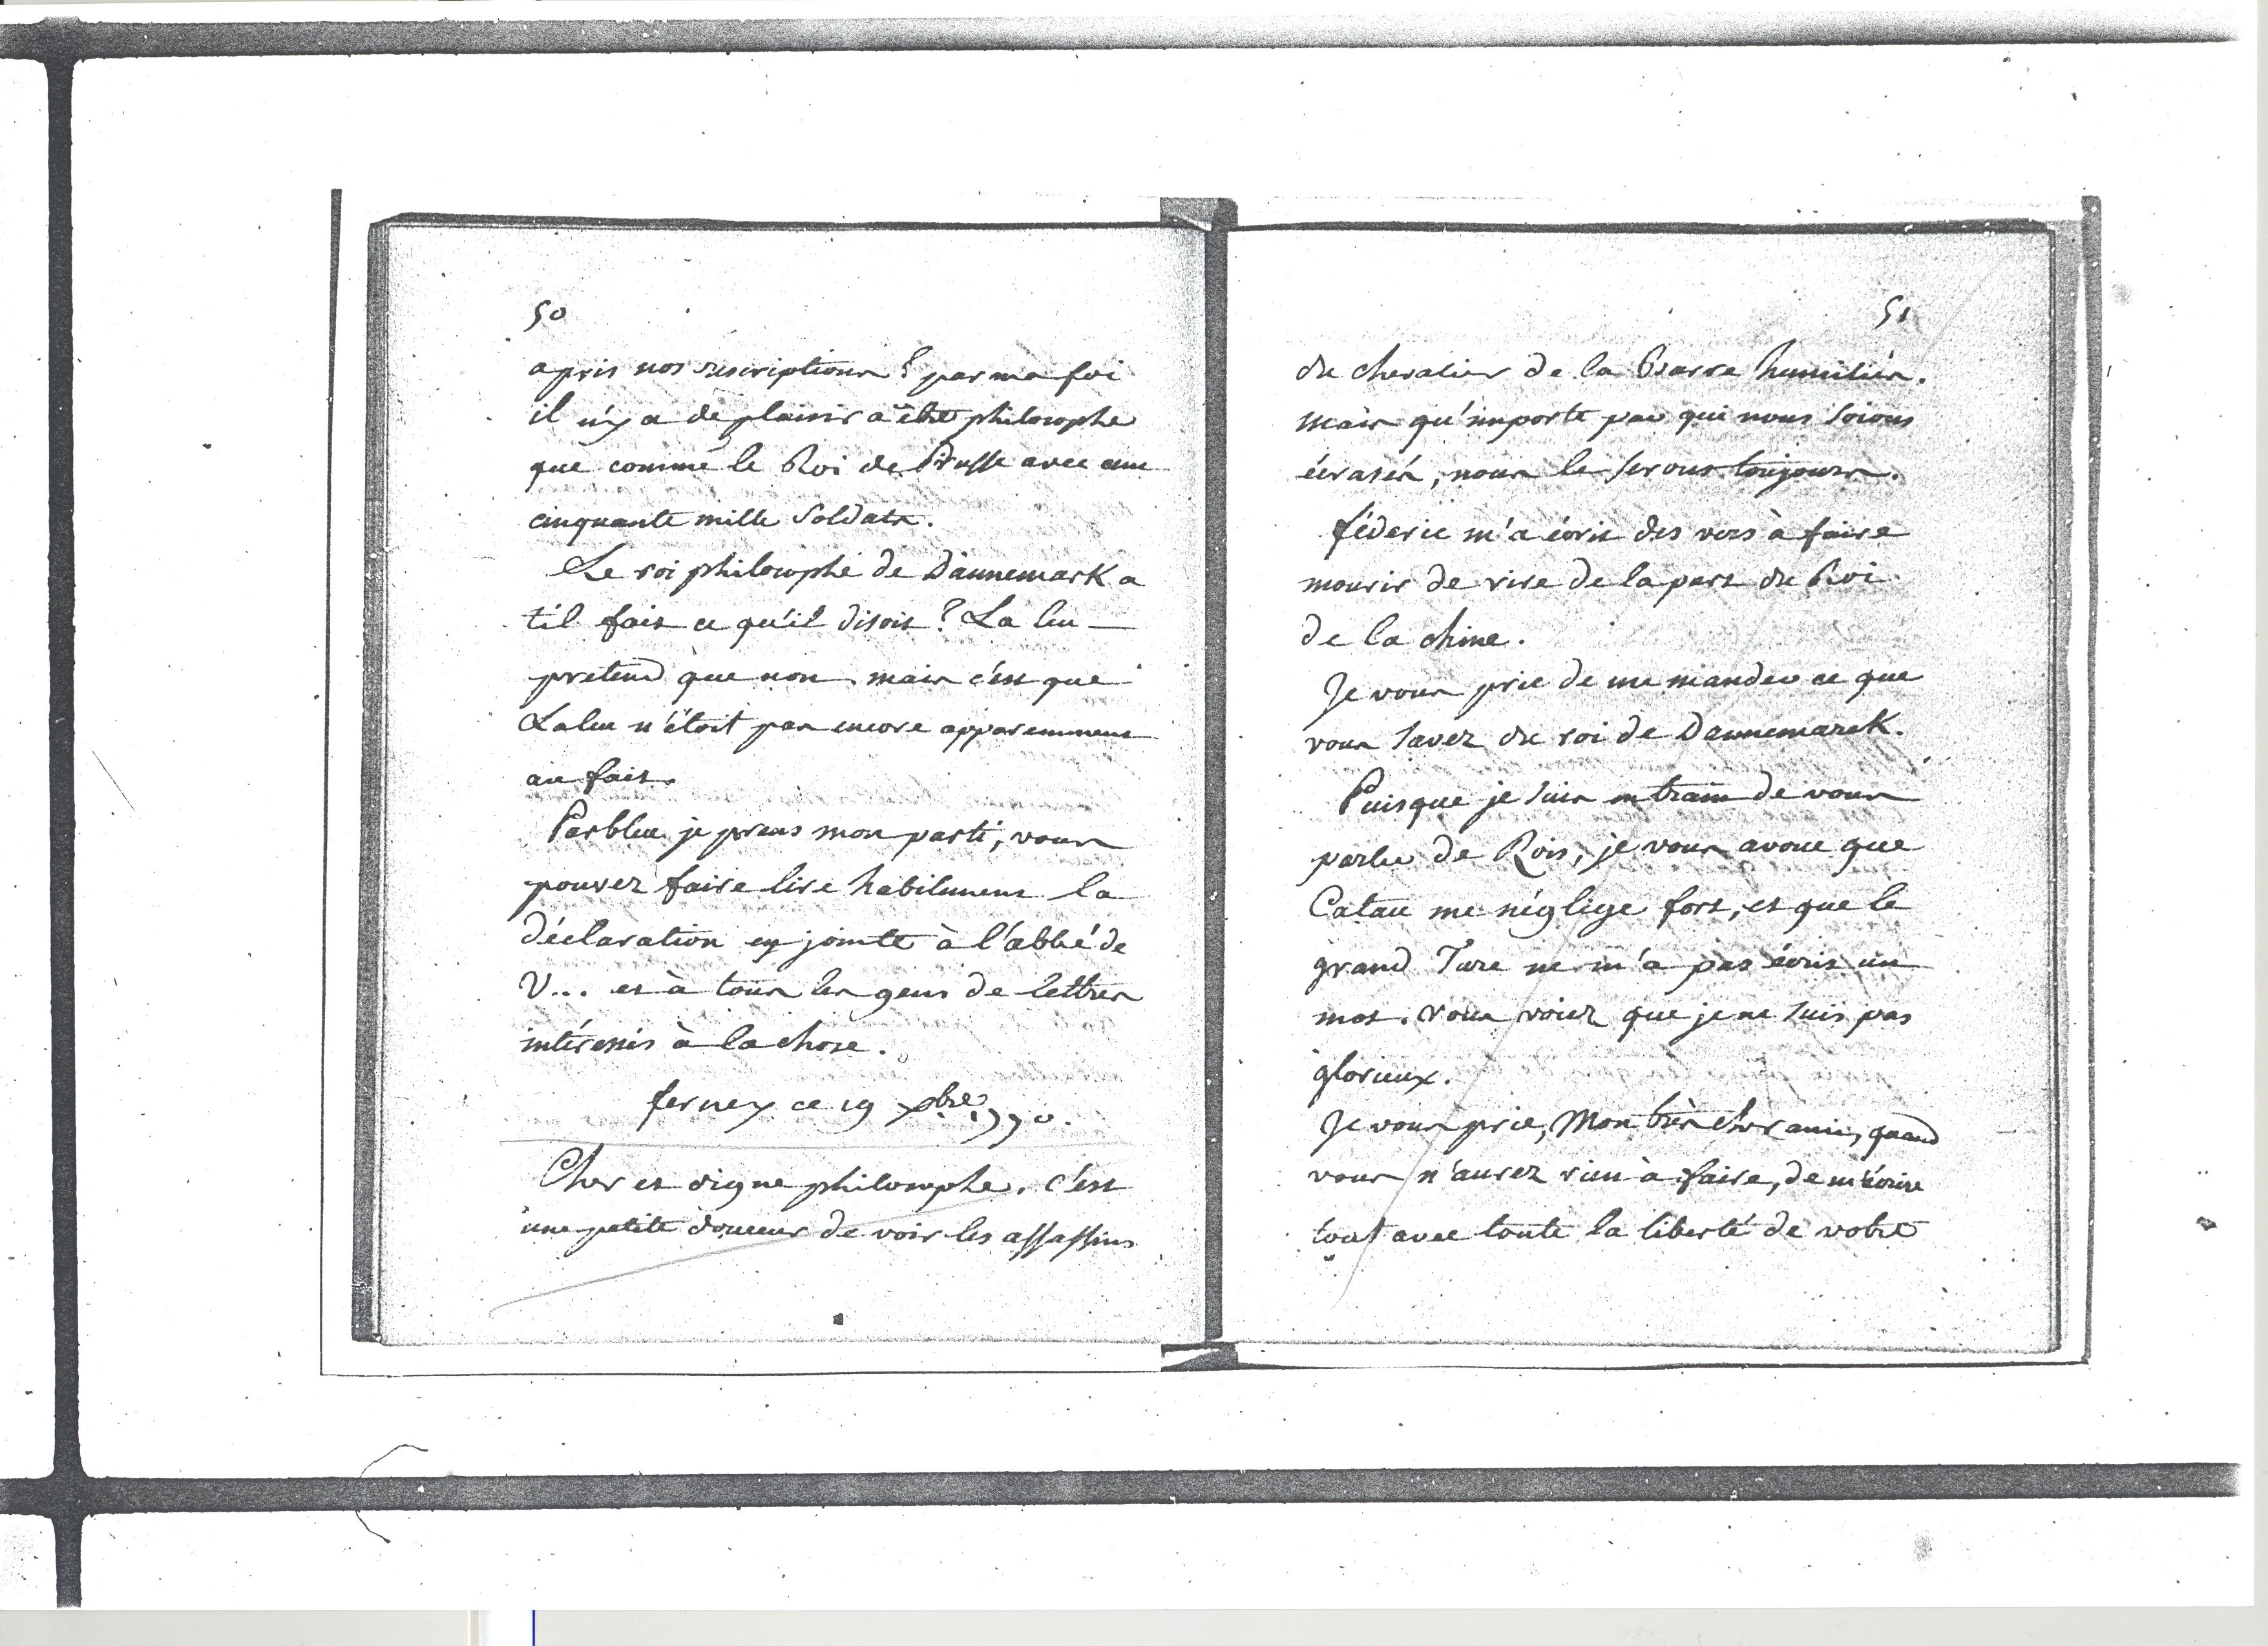 50
a pris nos rescriptions? par ma foi
il n'y a de plaisir a être philosophe
que comme le Roi de Prusse avec cent
cinquante mille soldats.
Le roi philosophe de Dannemark a
til fait ce qu'il disoit? La leu
pretend que non mais c'est que
Laleu n'étoit pas encore apparemment
au fait.
Parbleu je prens mon parti, vous
pouvez faire lire habilement la
déclaration cy jointe à l'abbé de
V... et à tous les gens de lettres
intéressés à la chose.
ferney ce 19 xbre 1770.
Cher et digne philosophe, c'est
une petite douceur de voir les assassins
51
du chevalier de la Barre humiliés.
mais qu'importe par qui nous soions
écrasés, nous le serons toujours.
féderic m'a écrit des vers à faire
mourir de rire de la part du Roi
de la chine.
Je vous prie de me mander ce que
vous savez du roi de Dannemarck.
Puisque je suis en train de vous
parler de Rois, je vous avoue que
Catau me néglige fort, et que le
grand Turc ne m'a pas écrit un
mot. Vous voiez que je ne suis pas
glorieux.
Je vous prie, Mon très cher ami, quand
vous n'aurez rien à faire, de m'écrire
tout avec toute la liberté de votre